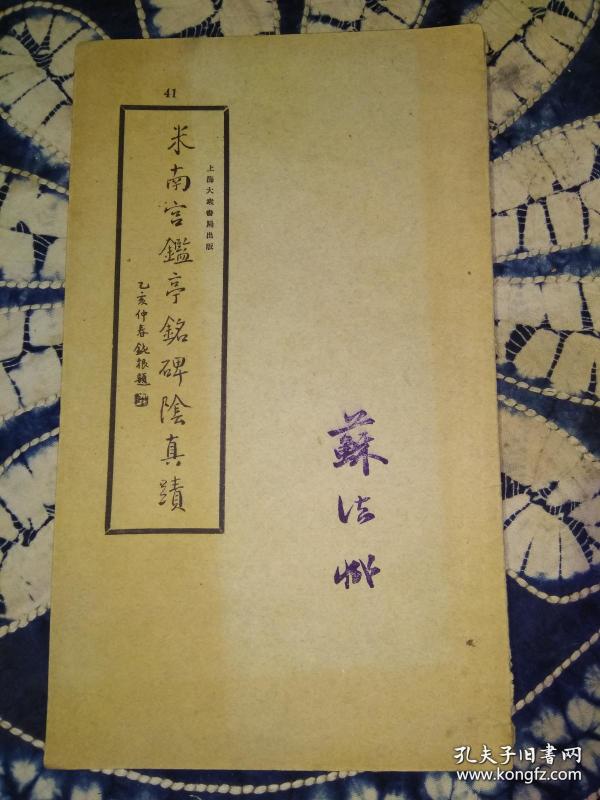 41
米南宮鑑亭銘碑陰真蹟
上海大衆書局出版
乙亥仲春鈍根題
蘇法
孔夫子旧书网
www.kongfz.com